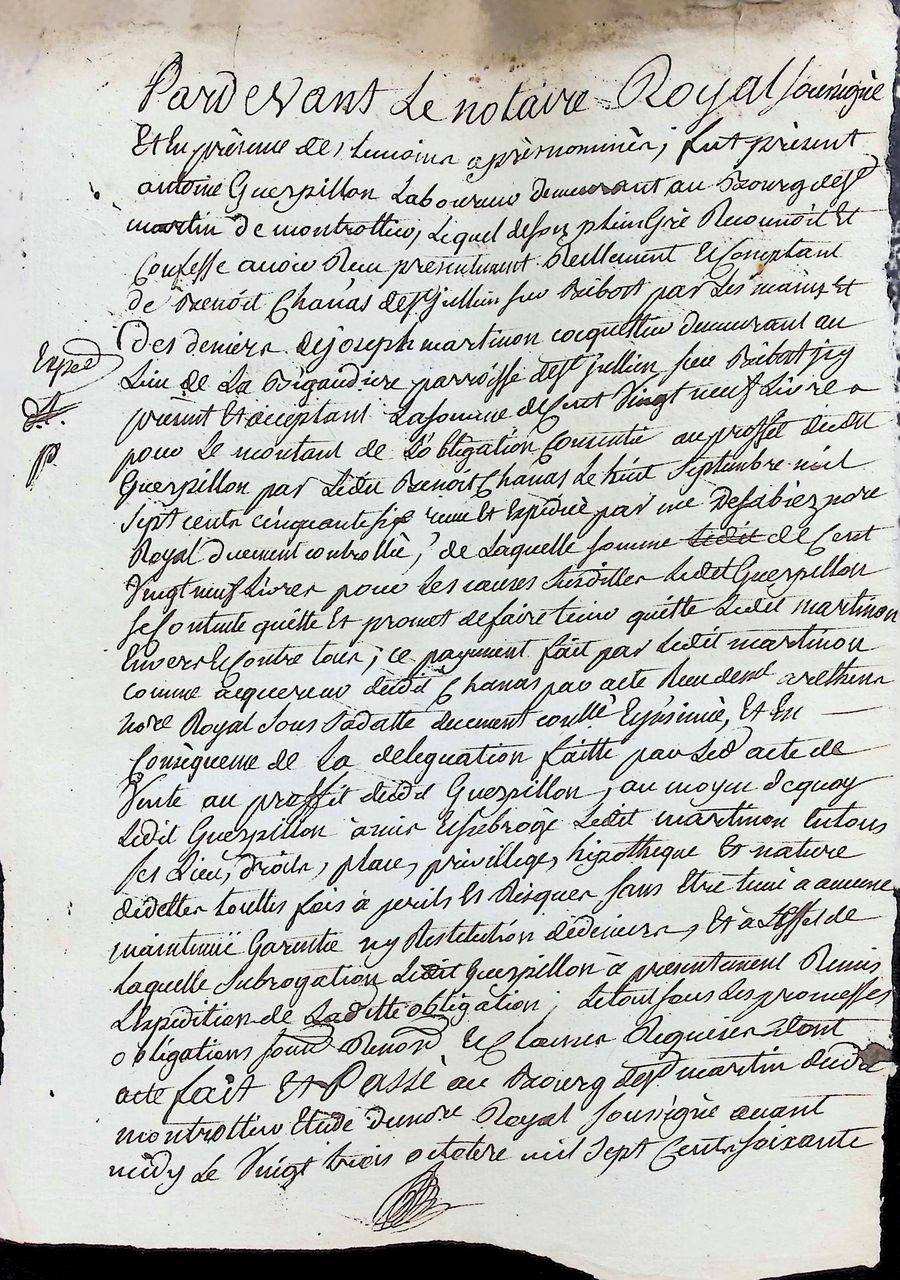 Pardevant Le notaire Royal sousigné
Et En présence des temoins aprèsnommés, fut présent
antoine Guerpillon Laboureur demeurant au Bourg de st
martin de montrottier, Lequel de son plein Gré Reconnoit Et
Confesse avoir Reçu présentement Réellement Et Comptant
de Benoit Chanas de st jullien sur Bibost par Les mains Et
des deniers de joseph martinon cocquettier demeurant au
Exped
Lieu de La Bigaudiere parroisse de st jullien sur Bibost jcy
présent Et acceptant La somme de Cent Vingt neuf Livres
pour Le montant de L'obligation Consentie au proffit dudit
p
Guerpillon par Ledit Benoit Chanas Le huit Septembre mil
Sept cents cinquante six reçue Et Expediée par me Desabiez nore
Royal duement controllée, de Laquelle somme Ledit de Cent
Vingt neuf Livres pour Les causes Susdittes Ledit Guerpillon
se Contente quitte Et promet de faire tenir quitte Ledit martinon
Envers Et Contre tous; ce payement fait par Ledit martinon
comme acquereur dudit Chanas par acte Reçu de me
nore Royal sous sa datte duement conllé Et insinué, Et En
Conséquence de La deleguation faitte par Led acte de
Vente au proffit dudit Guerpillon, au moyen de quoy
Ledit Guerpillon à mis Et subrogé Ledit martinon En tous
ses Lieu, droits, place, privillege, hipotheque Et nature
dedettes touttes fois à perils Et Risques sans Etre tenu a aucune
maintenüe Garentie ny Restitution de deniers, Et à L'effet de
Laquelle Subrogation Ledit Guerpillon à présentement Remis
L'Expedition de Laditte obligation; Le tout sous Les promesses
obligations soumd Renond Et Clauses Requises Dont
acte fait Et Passé au Bourg de st martin dudit
montrottier Etude dudt nore Royal sousigné avant
midy Le Vingt trois octobre mil Sept Cents soixante